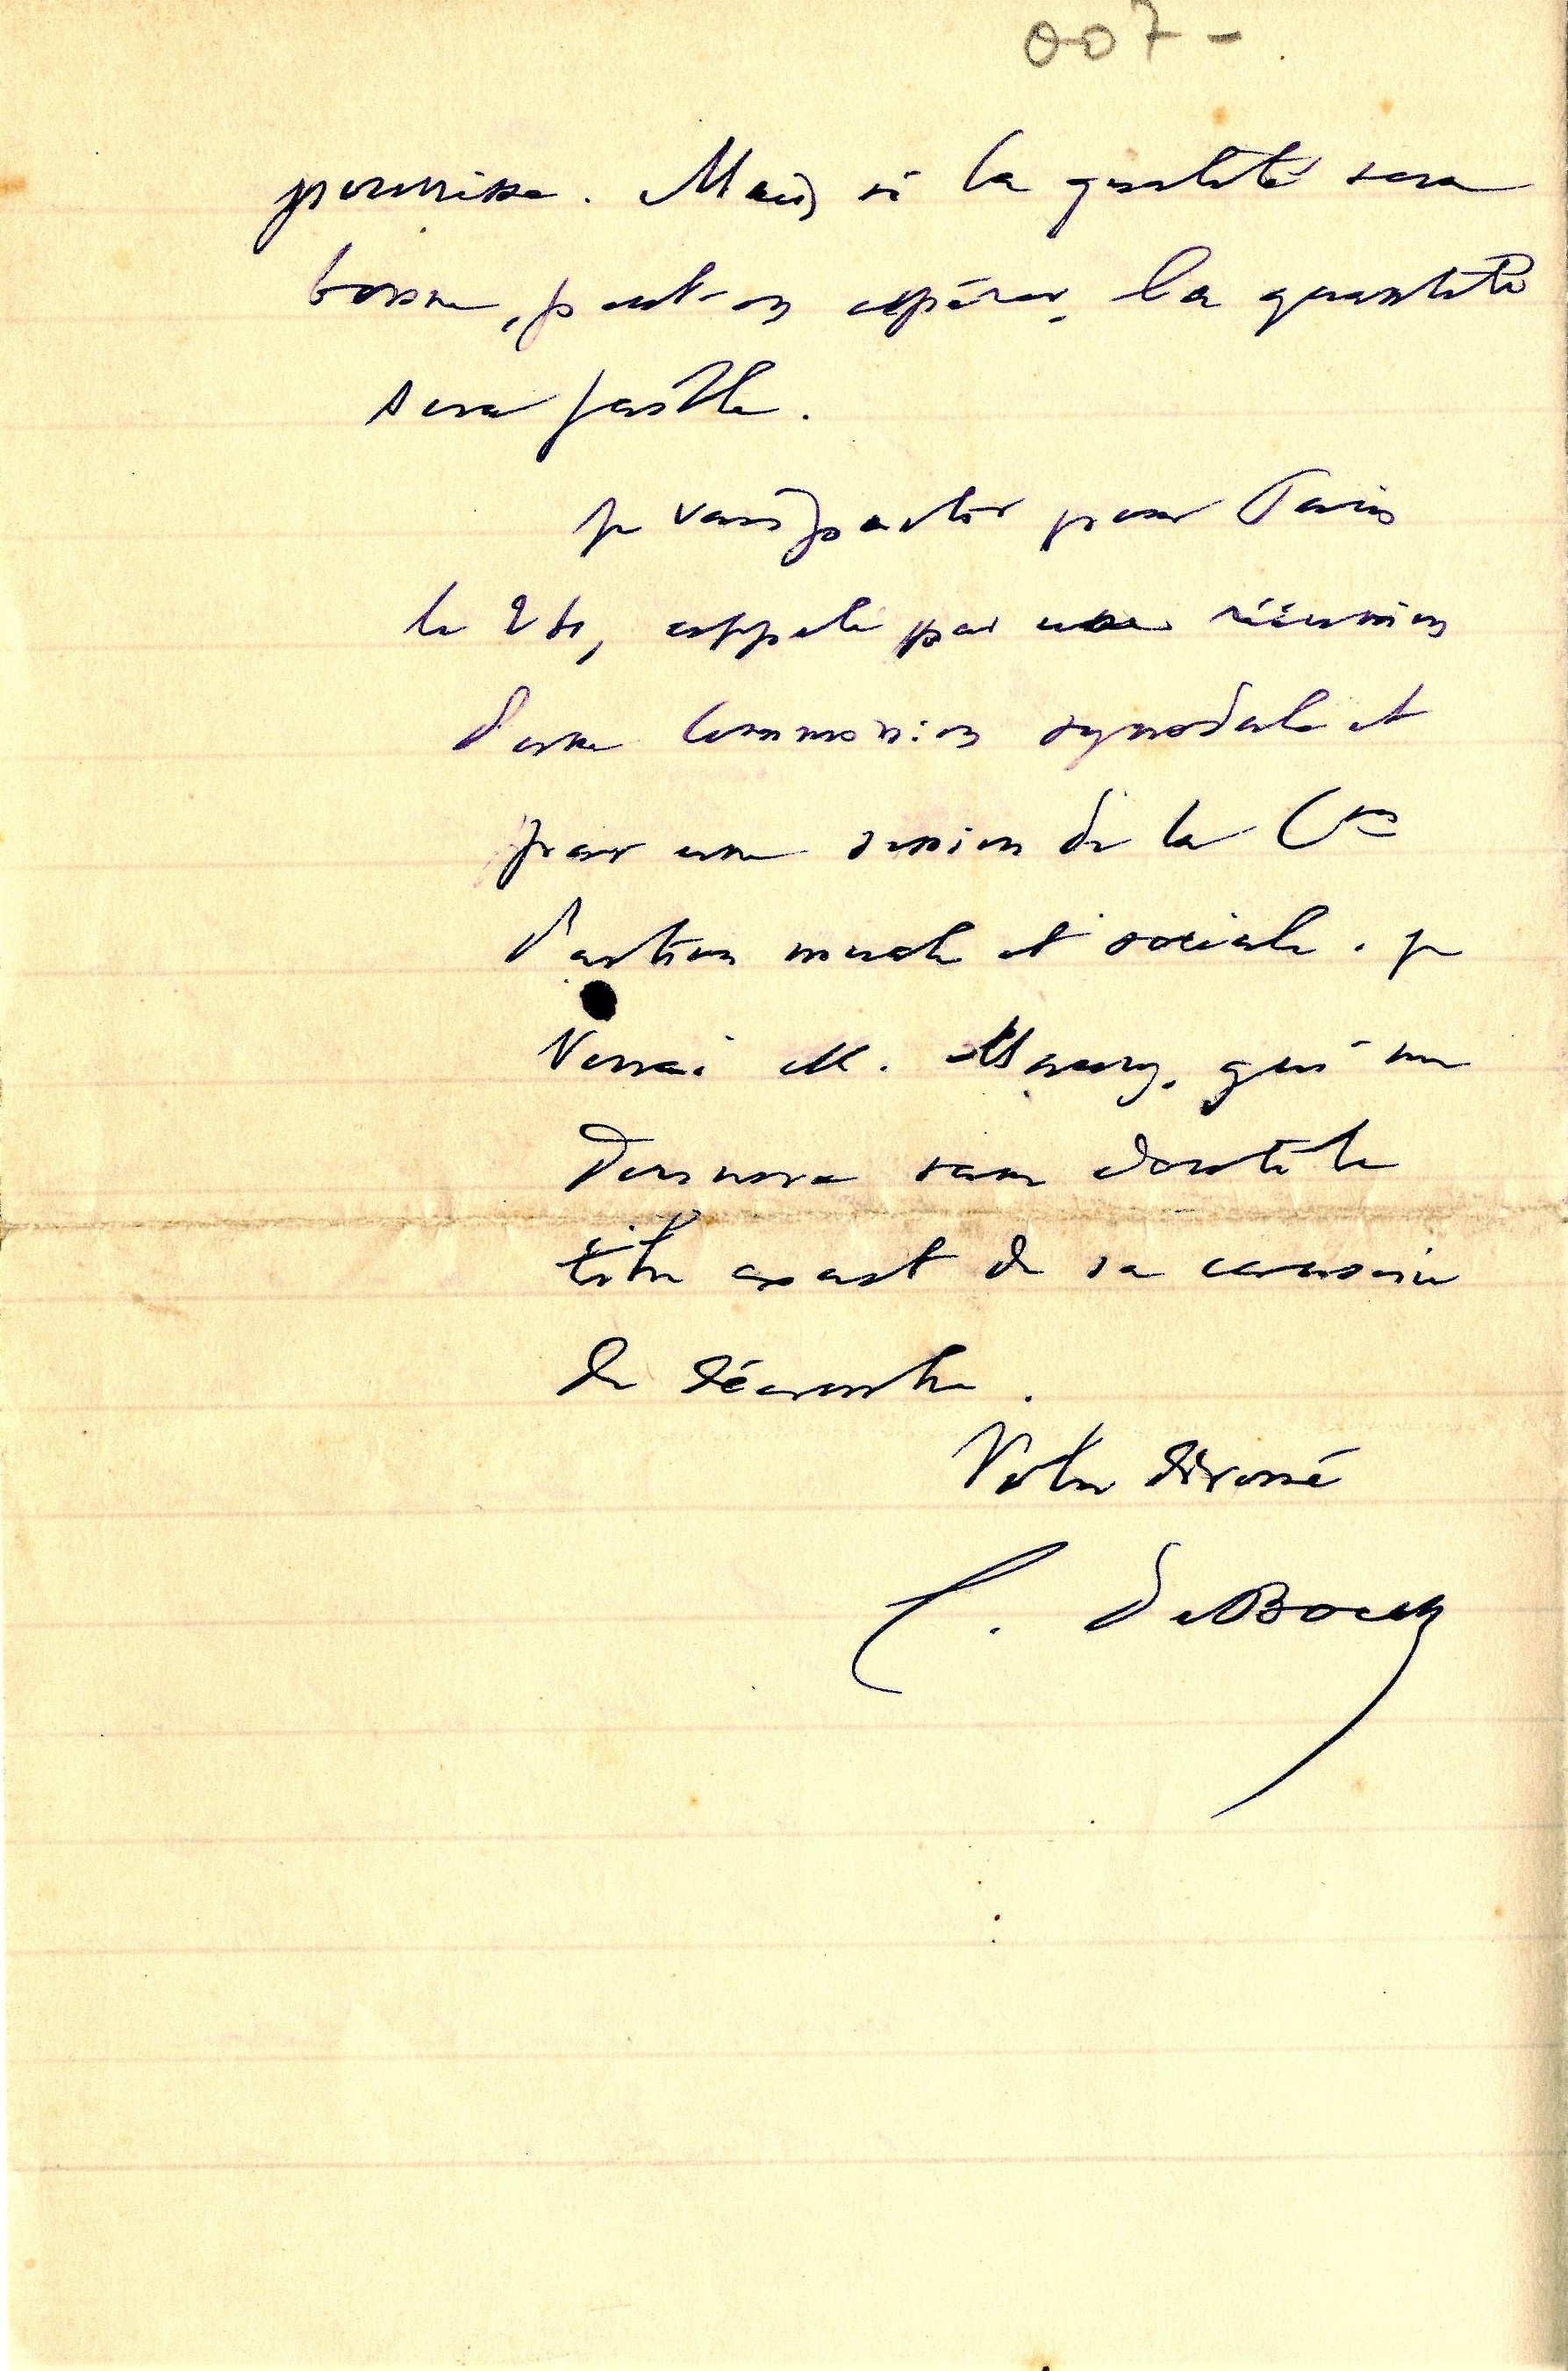 007 -
pourrisse. Mais si la qualité sera
bonne, peut-on espérer, la quantité
sera faible.
je vais partir pour Paris
le 26, appelé par une réunion
d'une Commission synodale et
pour une session de la Con
d'action morale et sociale. je
verrai M. Maury, qui me
donnera sans doute le
titre exact de sa causerie
de décembre.
Votre dévoué
C. Deboeck